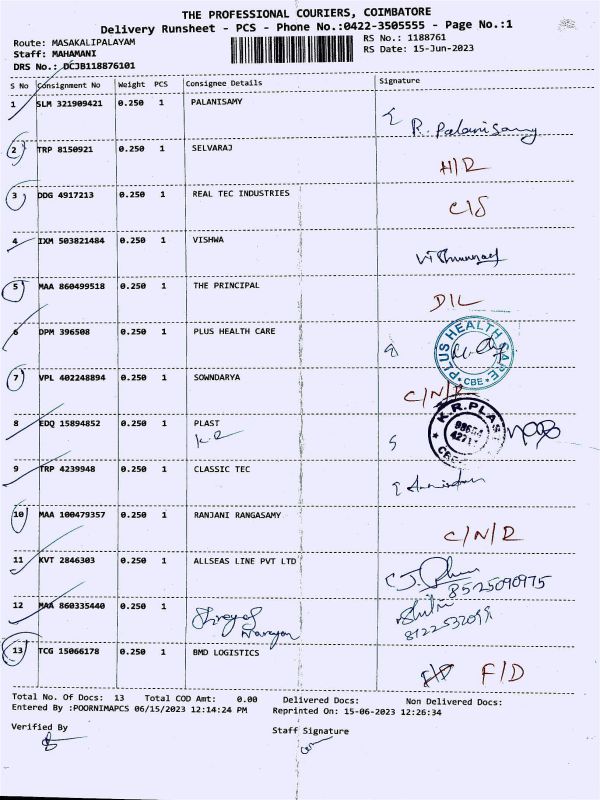 THE PROFESSIONAL COURIERS, COIMBATORE
Delivery Runsheet - PCS - Phone No.:0422-3505555 - Page No.:1
Route: MASAKALIPALAYAM RS No.: 1188761
Staff: MAHAMANI RS Date: 15-Jun-2023
DRS No.: DCJB118876101
S No Consignment No Weight PCS Consignee Details Signature
1 SLM 321909421 0.250 1 PALANISAMY
R. Palanisamy
2 TRP 8150921 0.250 1 SELVARAJ
H/R
3 DDG 4917213 0.250 1 REAL TEC INDUSTRIES
C/S
4 IXM 503821484 0.250 1 VISHWA
5 MAA 860499518 0.250 1 THE PRINCIPAL
D/L
6 DPM 396508 0.250 1 PLUS HEALTH CARE
PLUS HEALTH CARE CBE
7 VPL 402248894 0.250 1 SOWNDARYA
C/N/R
8 EDQ 15894852 0.250 1 PLAST
K.R
K.R.PLAST
9 TRP 4239948 0.250 1 CLASSIC TEC
10 MAA 100479357 0.250 1 RANJANI RANGASAMY
C/N/R
11 KVT 2846303 0.250 1 ALLSEAS LINE PVT LTD
8525090975
12 MAA 860335440 0.250 1
Narayan
13 TCG 15066178 0.250 1 BMD LOGISTICS
F/D
Total No. Of Docs: 13 Total COD Amt: 0.00 Delivered Docs: Non Delivered Docs:
Entered By :POORNIMAPCS 06/15/2023 12:14:24 PM Reprinted On: 15-06-2023 12:26:34
Verified By Staff Signature